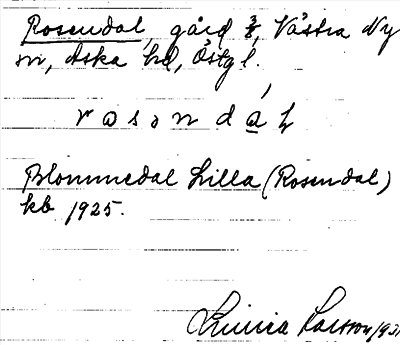 Rosendal, gård, Västra Ny
sn, Aska hd, Östgl.
Blommedal Lilla (Rosendal)
kb 1925.
Linnea Larsson 1931